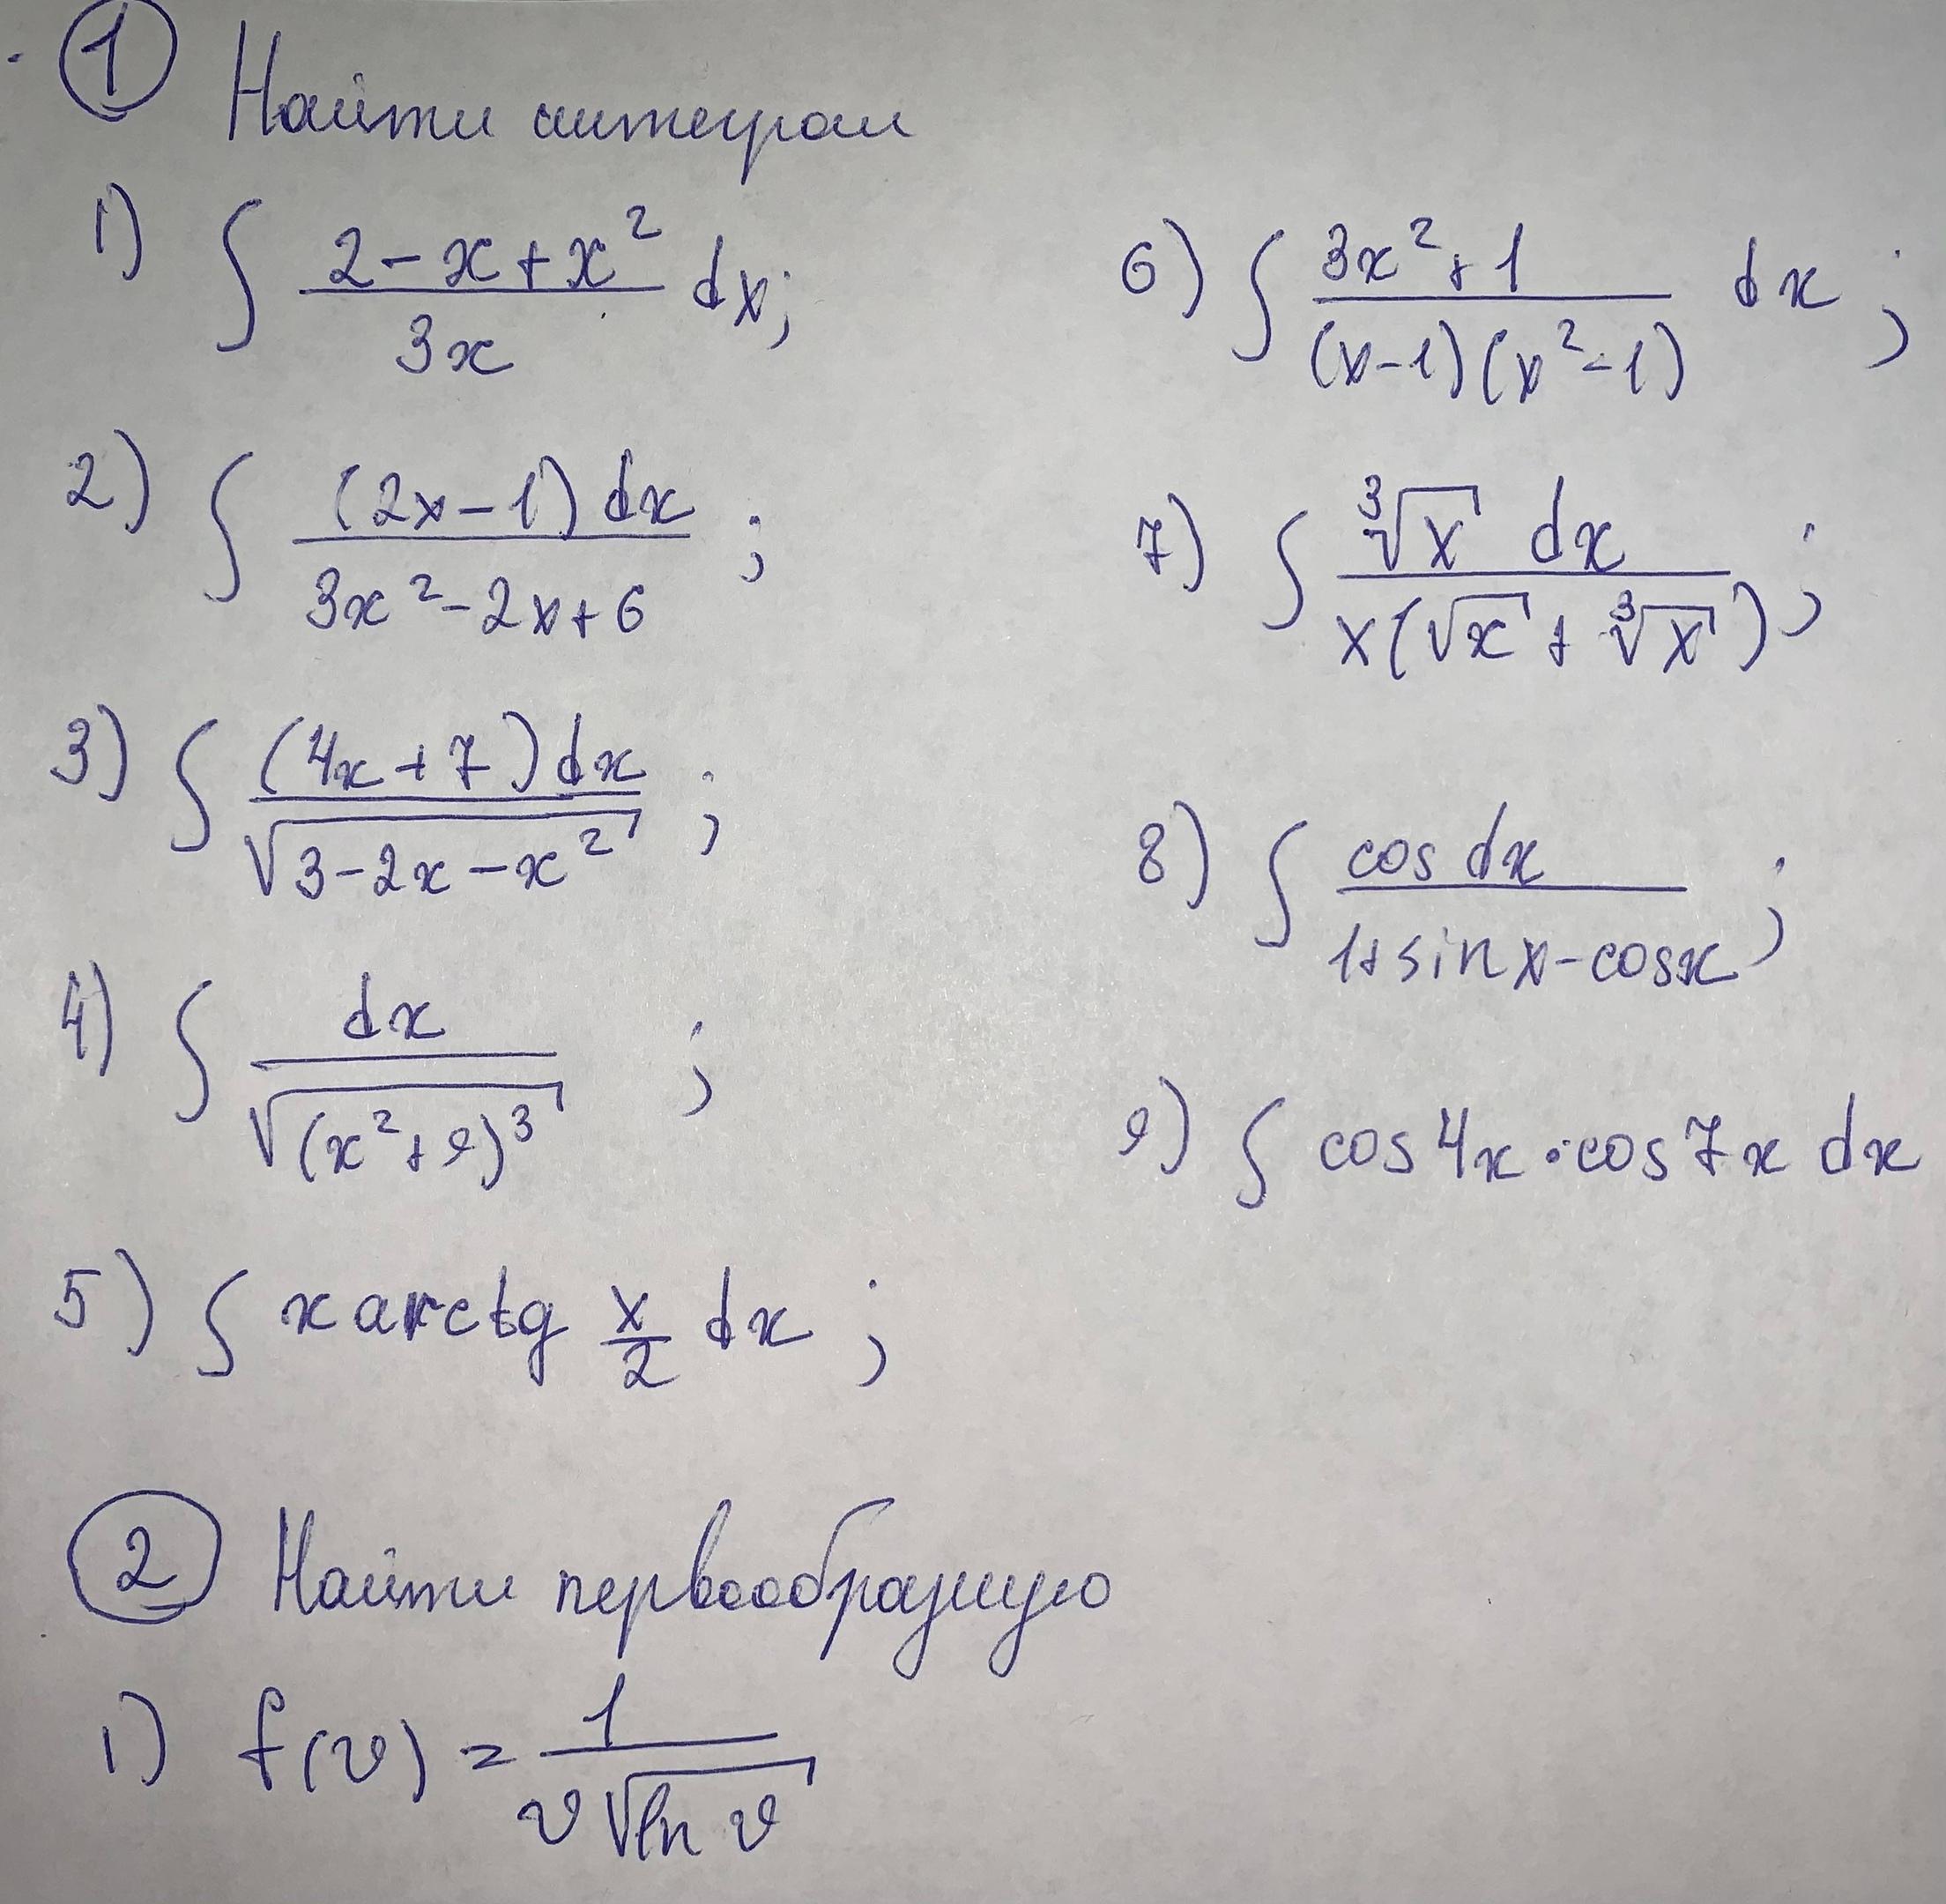 ① Найти интеграл
1) ∫ (2-x+x²)/(3x) dx;
2) ∫ ((2x-1) dx)/(3x²-2x+6) ;
3) ∫ ((4x+7) dx)/√(3-2x-x²) ;
4) ∫ dx/√((x²+9)³) ;
5) ∫ x arctg x/2 dx ;
6) ∫ (3x²+1)/((x-1)(x²-1)) dx ;
7) ∫ (∛x dx)/(x(√x + ∛x)) ;
8) ∫ (cos dx)/(1+sin x-cosx) ;
9) ∫ cos4x·cos7x dx
② Найти первообразную
1) f(v) = 1/(v√(ln v))